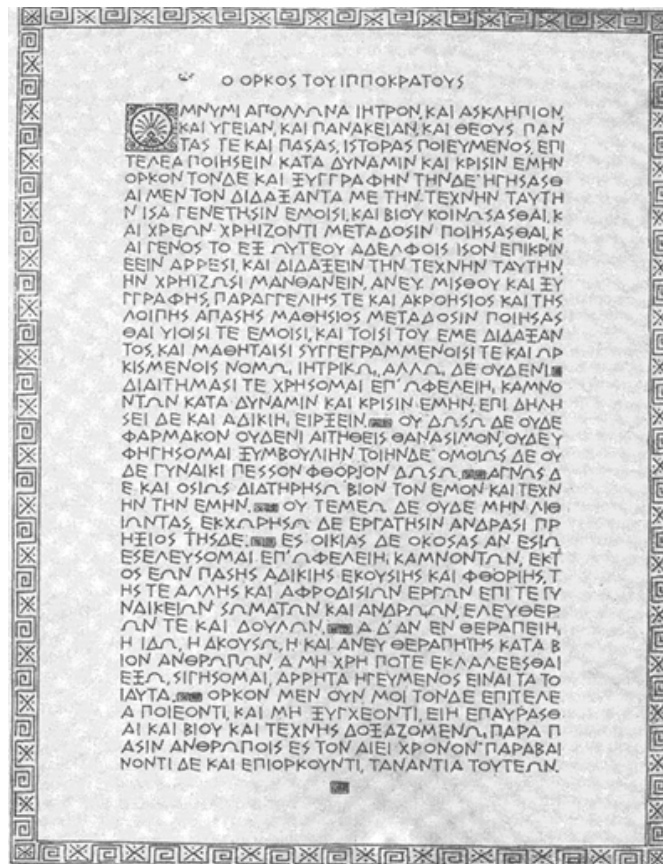 Ο ΟΡΚΟΣ ΤΟΥ ΙΠΠΟΚΡΑΤΟΥΣ
ΟΜΝΥΜΙ ΑΠΟΛΛΩΝΑ ΙΗΤΡΟΝ, ΚΑΙ ΑΣΚΛΗΠΙΟΝ,
ΚΑΙ ΥΓΕΙΑΝ, ΚΑΙ ΠΑΝΑΚΕΙΑΝ, ΚΑΙ ΘΕΟΥΣ ΠΑΝ
ΤΑΣ ΤΕ ΚΑΙ ΠΑΣΑΣ, ΙΣΤΟΡΑΣ ΠΟΙΕΥΜΕΝΟΣ, ΕΠΙ
ΤΕΛΕΑ ΠΟΙΗΣΕΙΝ ΚΑΤΑ ΔΥΝΑΜΙΝ ΚΑΙ ΚΡΙΣΙΝ ΕΜΗΝ
ΟΡΚΟΝ ΤΟΝΔΕ ΚΑΙ ΞΥΓΓΡΑΦΗΝ ΤΗΝΔΕ· ΗΓΗΣΑΣΘ
ΑΙ ΜΕΝ ΤΟΝ ΔΙΔΑΞΑΝΤΑ ΜΕ ΤΗΝ ΤΕΧΝΗΝ ΤΑΥΤΗ
Ν ΙΣΑ ΓΕΝΕΤΗΣΙΝ ΕΜΟΙΣΙ, ΚΑΙ ΒΙΟΥ ΚΟΙΝΩΣΑΣΘΑΙ, Κ
ΑΙ ΧΡΕΩΝ ΧΡΗΙΖΟΝΤΙ ΜΕΤΑΔΟΣΙΝ ΠΟΙΗΣΑΣΘΑΙ, Κ
ΑΙ ΓΕΝΟΣ ΤΟ ΕΞ ΩΥΤΕΟΥ ΑΔΕΛΦΟΙΣ ΙΣΟΝ ΕΠΙΚΡΙΝ
ΕΕΙΝ ΑΡΡΕΣΙ, ΚΑΙ ΔΙΔΑΞΕΙΝ ΤΗΝ ΤΕΧΝΗΝ ΤΑΥΤΗΝ,
ΗΝ ΧΡΗΙΖΩΣΙ ΜΑΝΘΑΝΕΙΝ, ΑΝΕΥ ΜΙΣΘΟΥ ΚΑΙ ΞΥ
ΓΓΡΑΦΗΣ, ΠΑΡΑΓΓΕΛΙΗΣ ΤΕ ΚΑΙ ΑΚΡΟΗΣΙΟΣ ΚΑΙ ΤΗΣ
ΛΟΙΠΗΣ ΑΠΑΣΗΣ ΜΑΘΗΣΙΟΣ ΜΕΤΑΔΟΣΙΝ ΠΟΙΗΣΑΣ
ΘΑΙ ΥΙΟΙΣΙ ΤΕ ΕΜΟΙΣΙ, ΚΑΙ ΤΟΙΣΙ ΤΟΥ ΕΜΕ ΔΙΔΑΞΑΝ
ΤΟΣ, ΚΑΙ ΜΑΘΗΤΑΙΣΙ ΣΥΓΓΕΓΡΑΜΜΕΝΟΙΣΙ ΤΕ ΚΑΙ ΩΡ
ΚΙΣΜΕΝΟΙΣ ΝΟΜΩ, ΙΗΤΡΙΚΩ, ΑΛΛΩ, ΔΕ ΟΥΔΕΝΙ.
ΔΙΑΙΤΗΜΑΣΙ ΤΕ ΧΡΗΣΟΜΑΙ ΕΠ' ΩΦΕΛΕΙΗ, ΚΑΜΝΟ
ΝΤΩΝ ΚΑΤΑ ΔΥΝΑΜΙΝ ΚΑΙ ΚΡΙΣΙΝ ΕΜΗΝ, ΕΠΙ ΔΗΛΗ
ΣΕΙ ΔΕ ΚΑΙ ΑΔΙΚΙΗ, ΕΙΡΞΕΙΝ. ΟΥ ΔΩΣΩ ΔΕ ΟΥΔΕ
ΦΑΡΜΑΚΟΝ ΟΥΔΕΝΙ ΑΙΤΗΘΕΙΣ ΘΑΝΑΣΙΜΟΝ, ΟΥΔΕ Υ
ΦΗΓΗΣΟΜΑΙ ΞΥΜΒΟΥΛΙΗΝ ΤΟΙΗΝΔΕ· ΟΜΟΙΩΣ ΔΕ ΟΥ
ΔΕ ΓΥΝΑΙΚΙ ΠΕΣΣΟΝ ΦΘΟΡΙΟΝ ΔΩΣΩ. ΑΓΝΩΣ Δ
Ε ΚΑΙ ΟΣΙΩΣ ΔΙΑΤΗΡΗΣΩ ΒΙΟΝ ΤΟΝ ΕΜΟΝ ΚΑΙ ΤΕΧΝ
ΗΝ ΤΗΝ ΕΜΗΝ. ΟΥ ΤΕΜΕΩ ΔΕ ΟΥΔΕ ΜΗΝ ΛΙΘ
ΙΩΝΤΑΣ, ΕΚΧΩΡΗΣΩ ΔΕ ΕΡΓΑΤΗΣΙΝ ΑΝΔΡΑΣΙ ΠΡ
ΗΞΙΟΣ ΤΗΣΔΕ. ΕΣ ΟΙΚΙΑΣ ΔΕ ΟΚΟΣΑΣ ΑΝ ΕΣΙΩ
ΕΣΕΛΕΥΣΟΜΑΙ ΕΠ' ΩΦΕΛΕΙΗ, ΚΑΜΝΟΝΤΩΝ, ΕΚΤ
ΟΣ ΕΩΝ ΠΑΣΗΣ ΑΔΙΚΙΗΣ ΕΚΟΥΣΙΗΣ ΚΑΙ ΦΘΟΡΙΗΣ, Τ
ΗΣ ΤΕ ΑΛΛΗΣ ΚΑΙ ΑΦΡΟΔΙΣΙΩΝ ΕΡΓΩΝ ΕΠΙ ΤΕ ΓΥ
ΝΑΙΚΕΙΩΝ ΣΩΜΑΤΩΝ ΚΑΙ ΑΝΔΡΩΩΝ, ΕΛΕΥΘΕΡ
ΩΝ ΤΕ ΚΑΙ ΔΟΥΛΩΝ. Α Δ' ΑΝ ΕΝ ΘΕΡΑΠΕΙΗ,
Η ΙΔΩ, Η ΑΚΟΥΣΩ, Η ΚΑΙ ΑΝΕΥ ΘΕΡΑΠΗΙΗΣ ΚΑΤΑ Β
ΙΟΝ ΑΝΘΡΩΠΩΝ, Α ΜΗ ΧΡΗ ΠΟΤΕ ΕΚΛΑΛΕΕΣΘΑΙ
ΕΞΩ, ΣΙΓΗΣΟΜΑΙ, ΑΡΡΗΤΑ ΗΓΕΥΜΕΝΟΣ ΕΙΝΑΙ ΤΑ ΤΟ
ΙΑΥΤΑ. ΟΡΚΟΝ ΜΕΝ ΟΥΝ ΜΟΙ ΤΟΝΔΕ ΕΠΙΤΕΛΕ
Α ΠΟΙΕΟΝΤΙ, ΚΑΙ ΜΗ ΞΥΓΧΕΟΝΤΙ, ΕΙΗ ΕΠΑΥΡΑΣΘ
ΑΙ ΚΑΙ ΒΙΟΥ ΚΑΙ ΤΕΧΝΗΣ ΔΟΞΑΖΟΜΕΝΩ, ΠΑΡΑ Π
ΑΣΙΝ ΑΝΘΡΩΠΟΙΣ ΕΣ ΤΟΝ ΑΙΕΙ ΧΡΟΝΟΝ· ΠΑΡΑΒΑΙ
ΝΟΝΤΙ ΔΕ ΚΑΙ ΕΠΙΟΡΚΟΥΝΤΙ, ΤΑΝΑΝΤΙΑ ΤΟΥΤΕΩΝ.